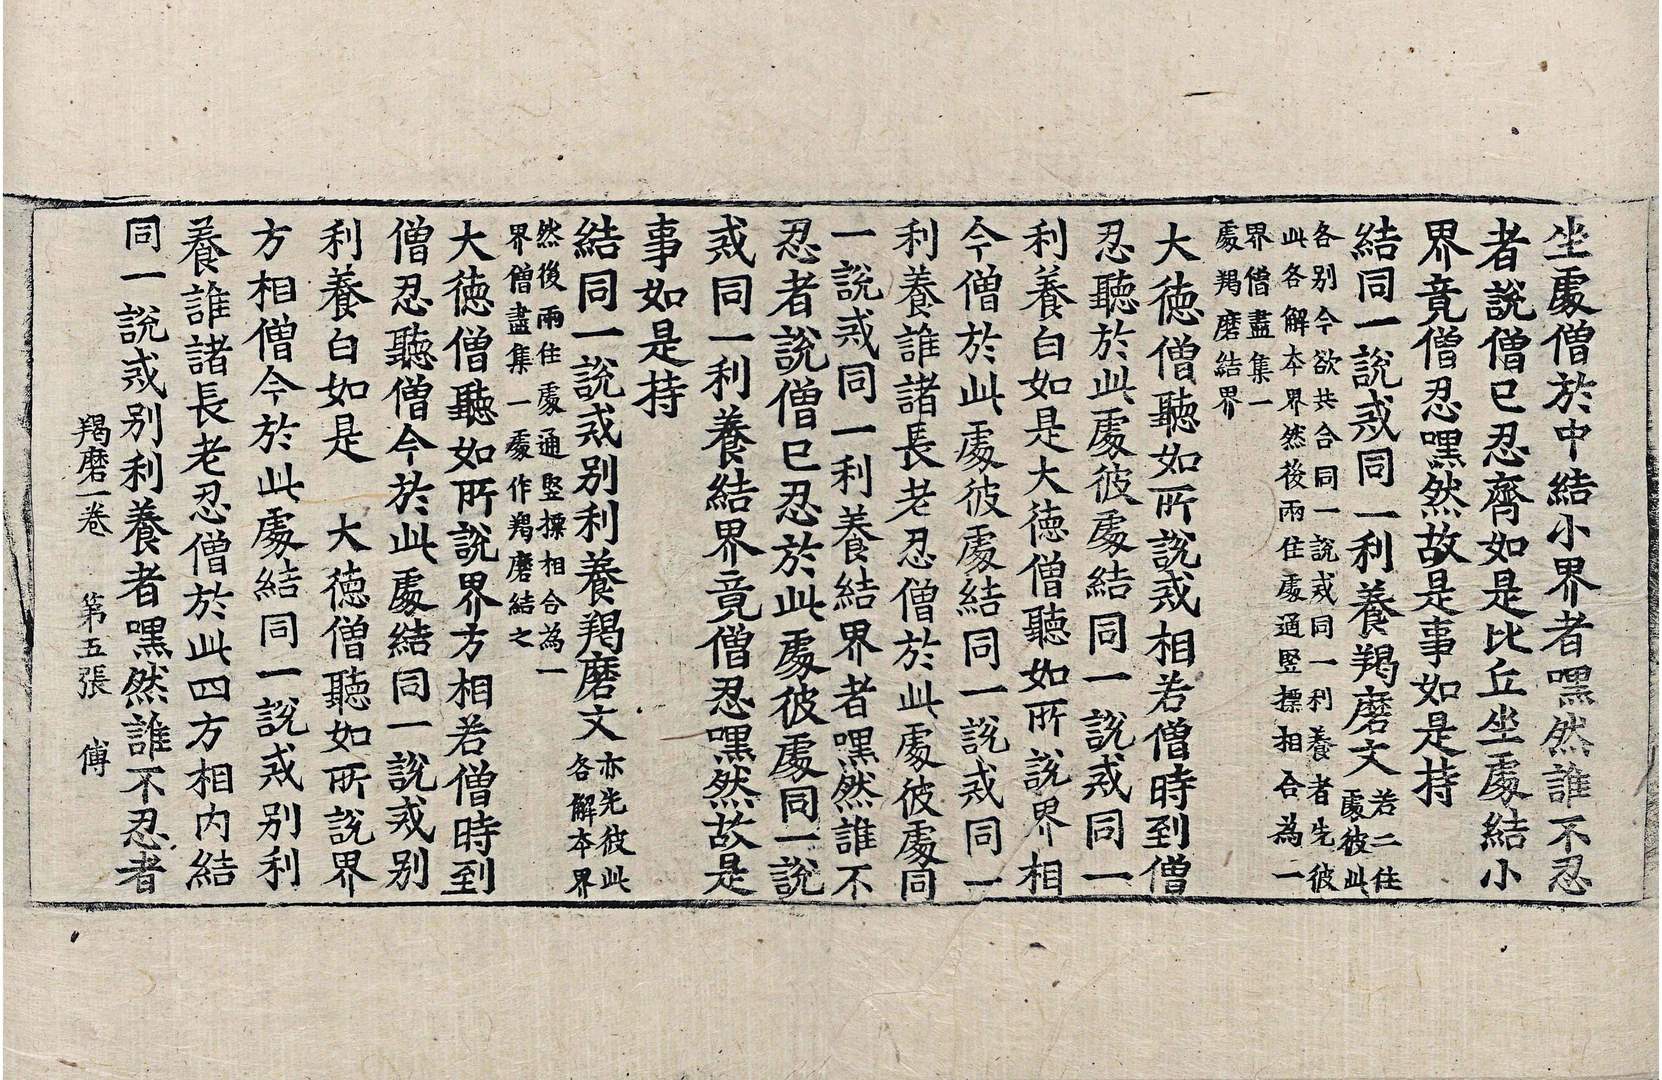 坐處僧於中結小界者嘿然誰不忍
者說僧已忍齊如是比丘坐處結小
界竟僧忍嘿然故是事如是持
結同一說戒同一利養羯磨文若二住
處彼此
各別今欲共合同一說戒同一利養者先彼
此各解本界然後兩住處通竪摽相合為一
界僧盡集一
處羯磨結界
大德僧聽如所說戒相若僧時到僧
忍聽於此處彼處結同一說戒同一
利養白如是大德僧聽如所說界相
今僧於此處彼處結同一說戒同一
利養誰諸長老忍僧於此處彼處同
一說戒同一利養結界者嘿然誰不
忍者說僧已忍於此處彼處同一說
戒同一利養結界竟僧忍嘿然故是
事如是持
結同一說戒別利養羯磨文亦先彼此
各解本界
然後兩住處通竪摽相合為一
界僧盡集一處作羯磨結之
大德僧聽如所說界方相若僧時到
僧忍聽僧今於此處結同一說戒別
利養白如是 大德僧聽如所說界
方相僧今於此處結同一說戒別利
養誰諸長老忍僧於此四方相內結
同一說戒別利養者嘿然誰不忍者
羯磨一卷 第五張 傅